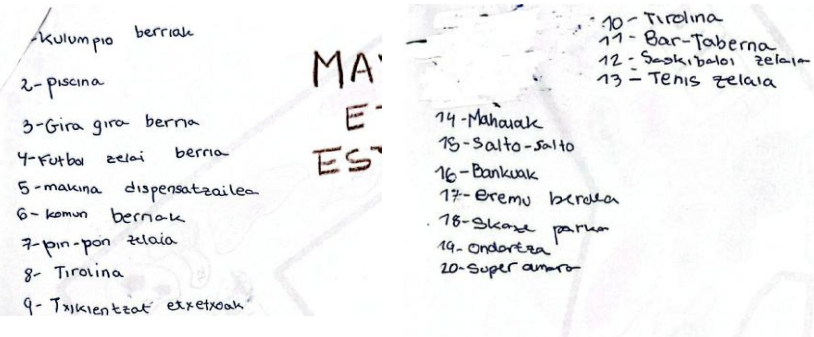 1-Kulumpio berriak
2-piscina
3-Gira gira berria
4-Futbol zelai berria
5-makina dispensatzailea
6-komun berriak
7-pin-pon zelaia
8-Tirolina
9-Txikientzat etxetxoak
MA
E
EST
10-Tirolina
11-Bar-Taberna
12-Saskibaloi zelaia
13-Tenis zelaia
14-Mahaiak
15-Salto-salto
16-Bankuak
17-Eremu berdea
18-Skate parkea
19-ondartza
20-Super amaro